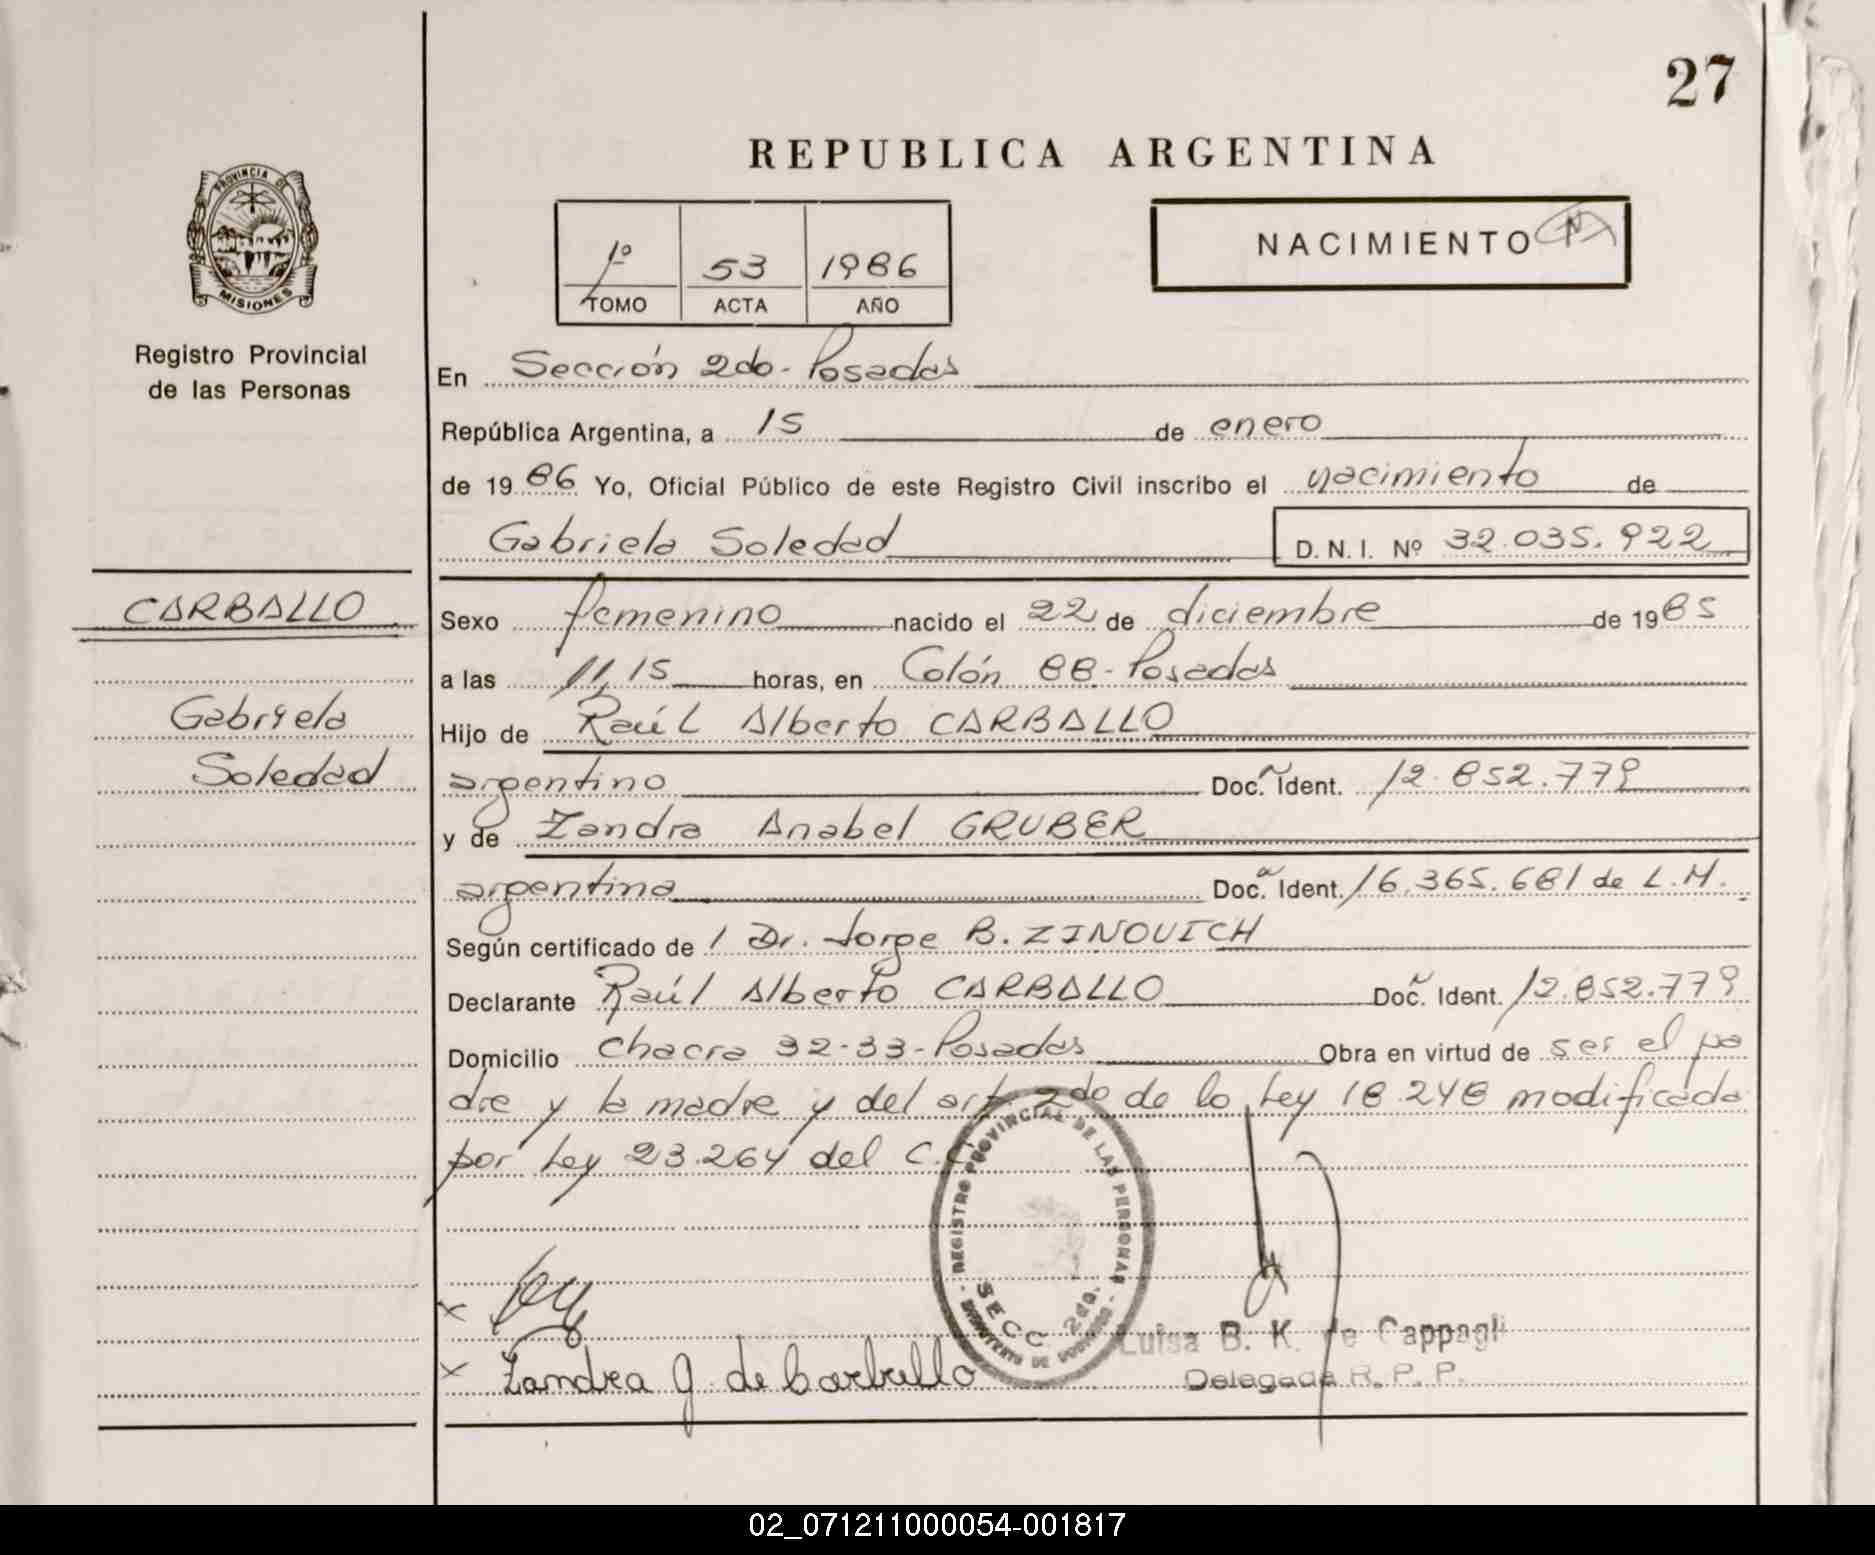 27
REPUBLICA ARGENTINA
PROVINCIA DE
MISIONES
Registro Provincial
de las Personas
1º 53 1986
TOMO ACTA AÑO
NACIMIENTO N
En Sección 2da- Posadas
República Argentina, a 15 de enero
de 1986 Yo, Oficial Público de este Registro Civil inscribo el nacimiento de
Gabriela Soledad D. N. I. Nº 32.035.922
CARBALLO
Gabriela
Soledad
Sexo femenino nacido el 22 de diciembre de 1985
a las 11,15 horas, en Colón 88- Posadas
Hijo de Raúl Alberto CARBALLO
argentino Doc. Ident. 12.852.779
y de Zandra Anabel GRUBER
argentina Doc. Ident. 16.365.681 de L.M.
Según certificado de / Dr. Jorge B. ZINOVICH
Declarante Raúl Alberto CARBALLO Doc. Ident. 12.852.779
Domicilio Chacra 32-33- Posadas Obra en virtud de ser el pa
dre y la madre y del art. 2do de la Ley 18.248 modificada
por Ley 23.264 del C.C.
REGISTRO PROVINCIAL DE LAS PERSONAS
SECC. 2da.
x
x Zandra G. de Carballo
Luisa B. K. de Cappagli
Delegada R. P. P.
02_071211000054-001817